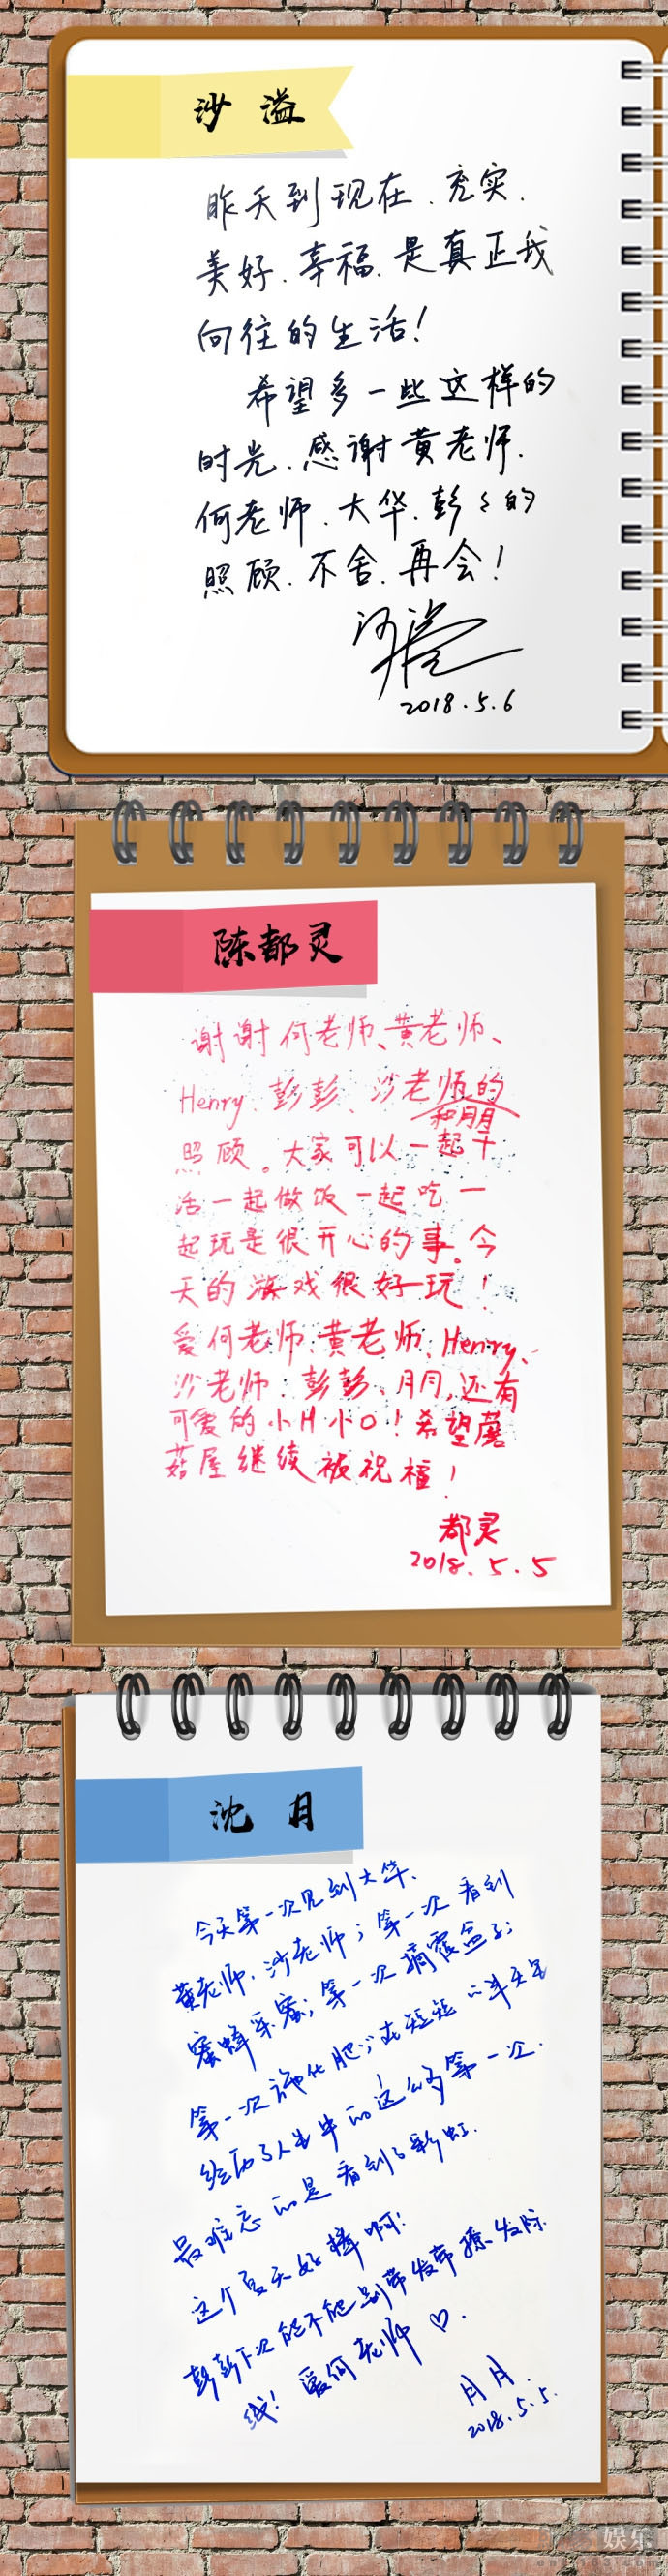 沙溢
昨天到现在、充实、
美好、幸福、是真正我
向往的生活！
希望多一些这样的
时光、感谢黄老师、
何老师、大华、彭彭的
照顾、不舍、再会！
沙溢
2018.5.6
陈都灵
谢谢何老师、黄老师、
Henry、彭彭、沙老师的
和月月
照顾。大家可以一起干
活一起做饭一起吃一
起玩是很开心的事。今
天的游戏很好玩！
爱何老师、黄老师、Henry、
沙老师、彭彭、月月，还有
可爱的小H小O！希望蘑
菇屋继续被祝福！
都灵
2018.5.5
沈月
今天第一次见到大华、
黄老师、沙老师；第一次看到
蜜蜂采蜜；第一次摘
第一次施化肥；在短短的半天里
经历了人生中的这么多第一次.
最难忘的是看到了彩虹.
这个夏天好棒啊！
彭彭下次能不能别带发带撩发际
线！爱何老师♡.
月月.
2018.5.5.
娱乐